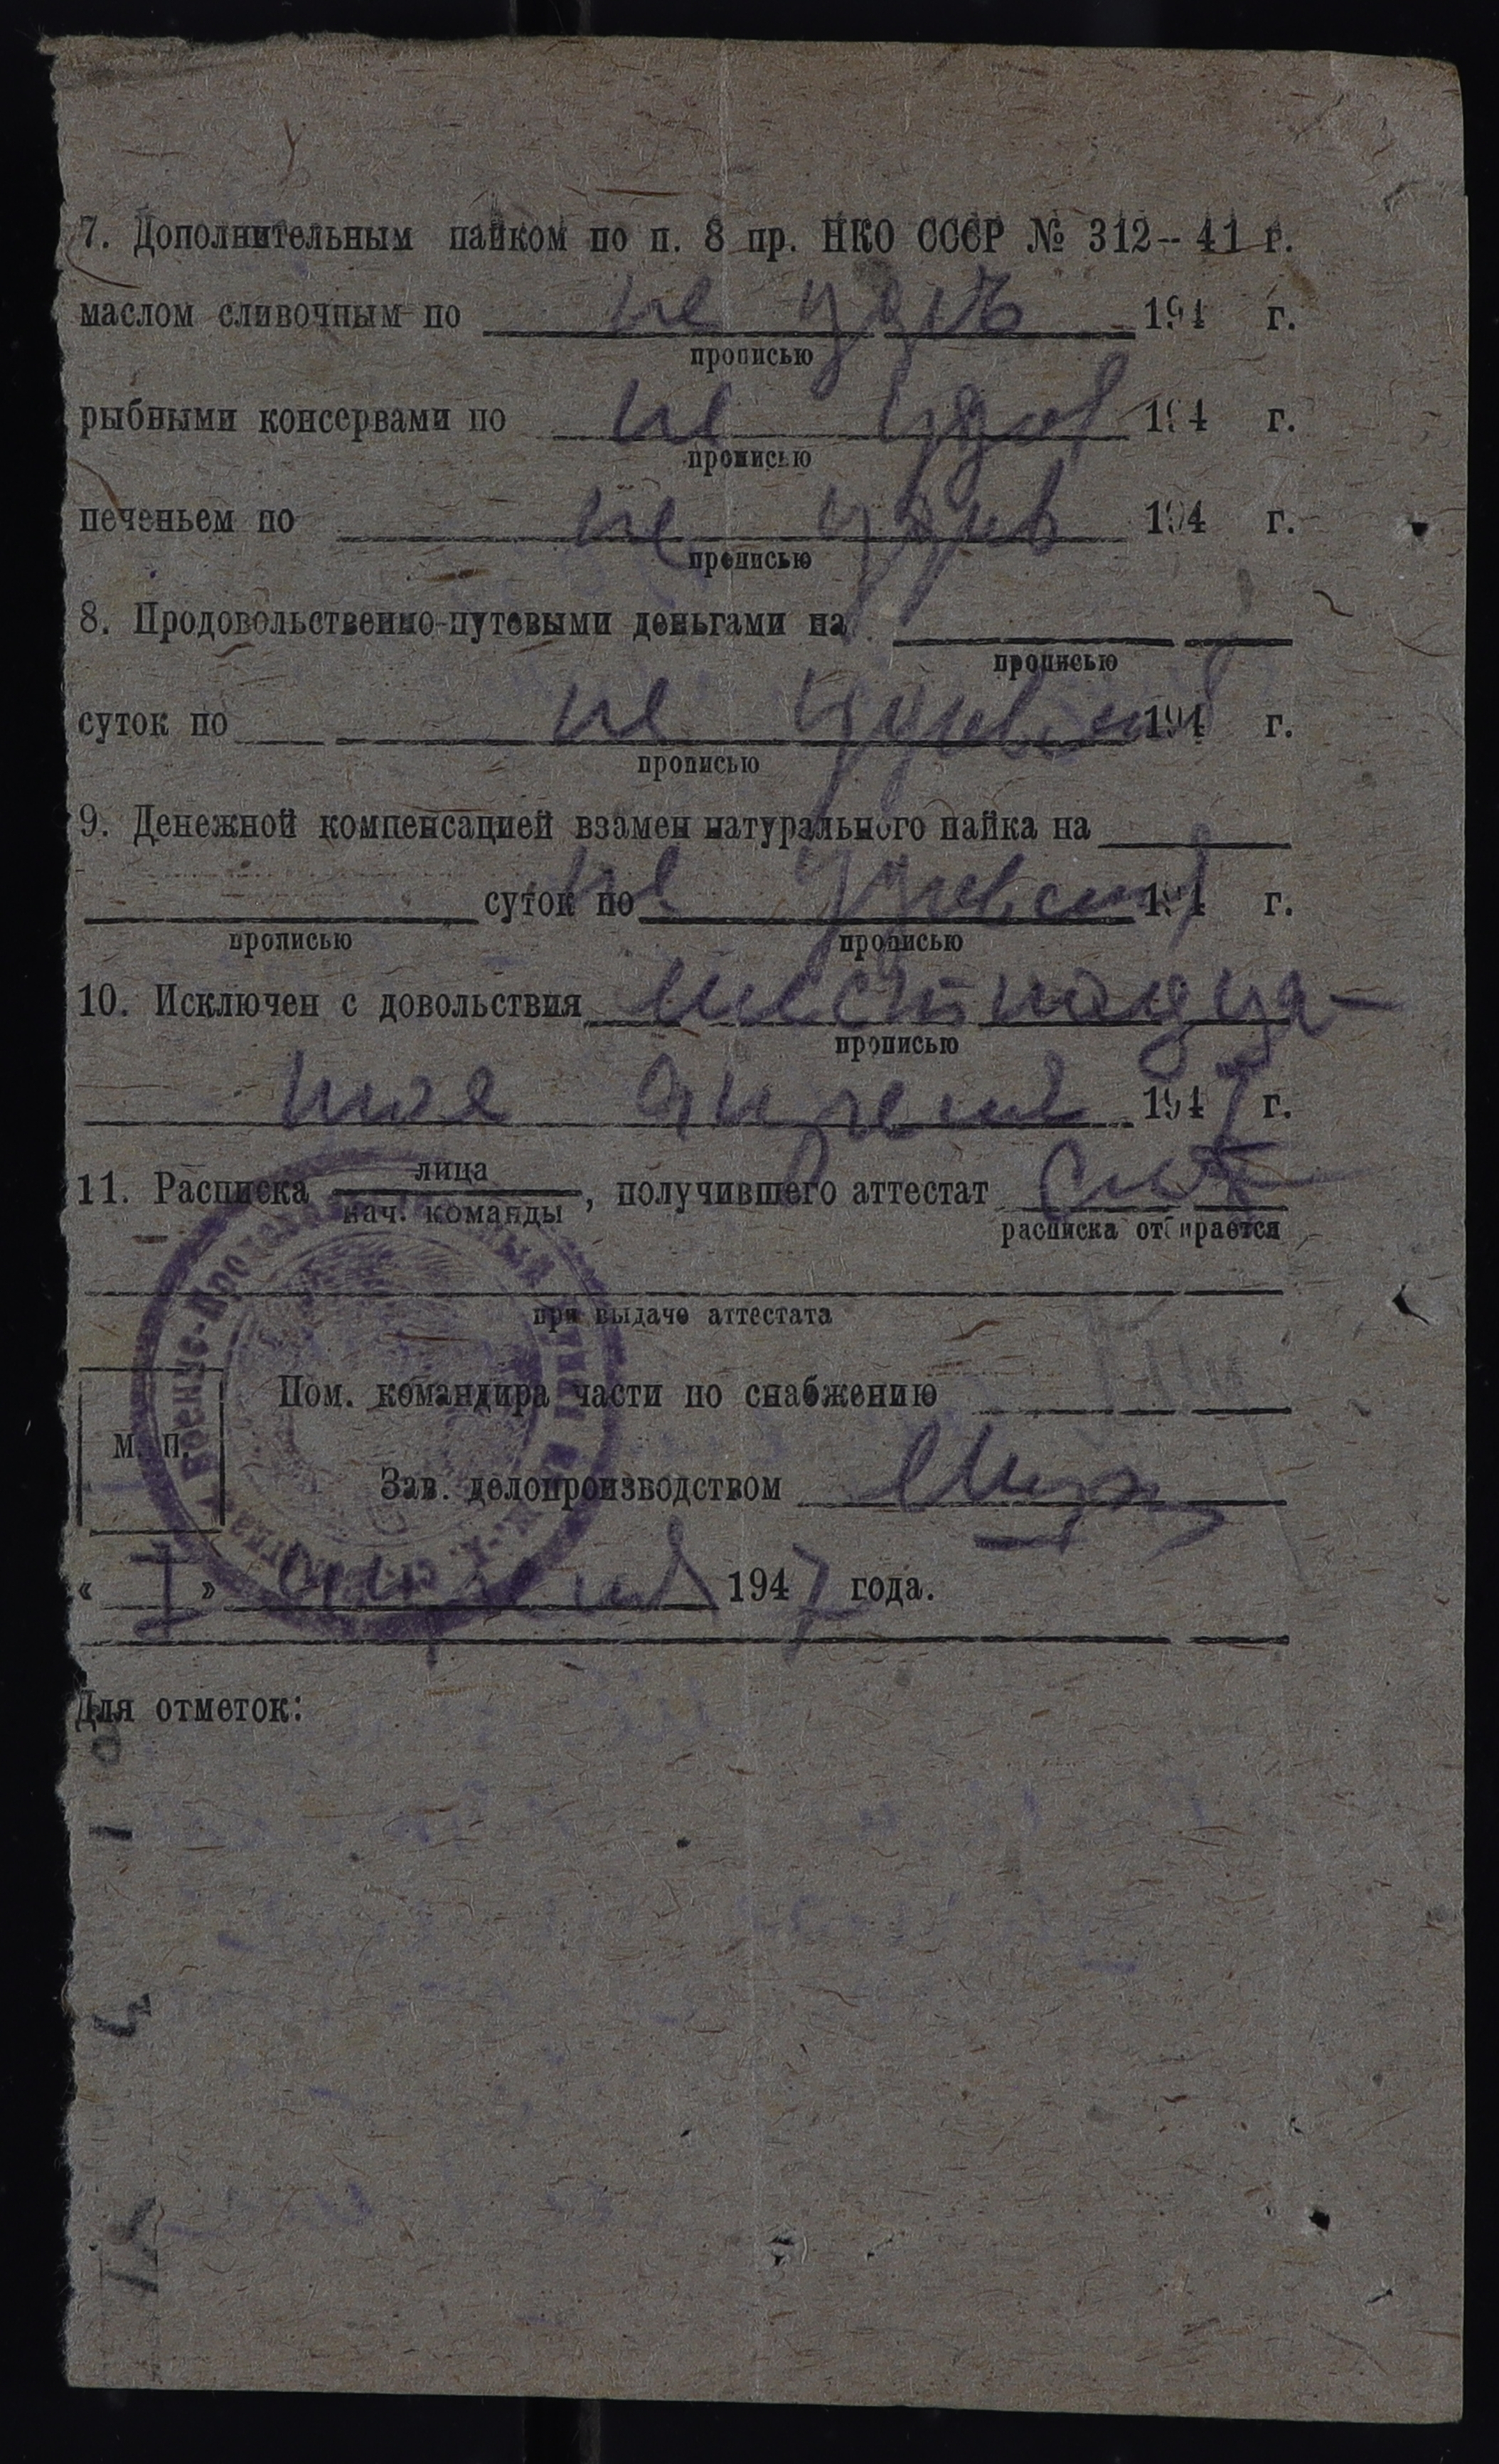 7. Дополнительным пайком по п. 8 пр. НКО СССР № 312-- 41 г.
маслом сливочным по не удов 194 г.
прописью
рыбными консервами по не удов 194 г.
прописью
печеньем по не удов 194 г.
прописью
8. Продовольственно-путевыми деньгами на
прописью
суток по не 194 г.
прописью
9. Денежной компенсацией взамен натурального пайка на
суток по не 194 г.
прописью прописью
10. Исключен с довольствия шестнадца-
прописью
тое апреля 1947 г.
11. Расписка лица
нач. команды , получившего аттестат
расписка отбирается
при выдаче аттестата
Пом. командира части по снабжению
М. П.
Зав. делопроизводством
« I » апреля 1947 года.
Для отметок: